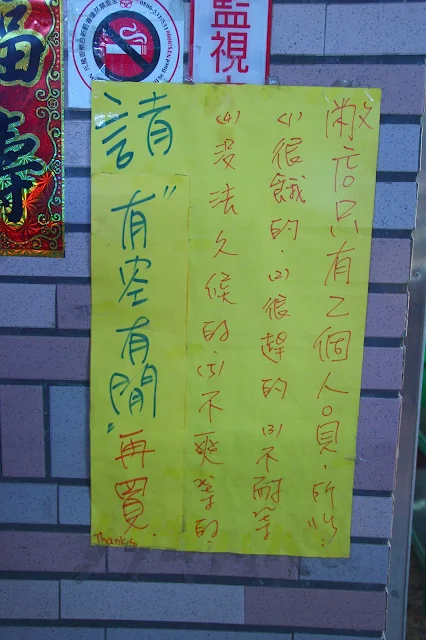 敝店只有2個人員,所以:
(1)很餓的.(2)很趕的(3)不耐等
(4)沒法久候的.(5)不爽等的.
請"有空有閒"再買.
Thanks
監視
福壽